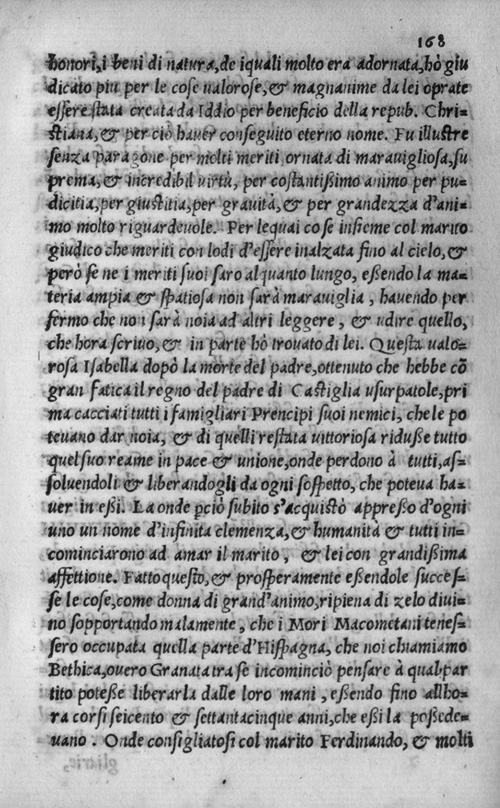 168
honori, i beni di natura, de iquali molto era adornata, hò giu
dicato piu per le cose valorose, & magnanime da lei oprate
essere stata creata da Iddio per beneficio della repub. Chri=
stiana, & per ciò haver conseguito eterno nome. Fu illustre
senza paragone per molti meriti ornata di maravigliosa, su
prema, & incredibil virtù, per costantißimo animo per pu=
dicitia, per giustitia, per gravità, & per grandezza d'ani=
mo molto riguardevole. Per lequai cose insieme col marito
giudico che meriti con lodi d'essere inalzata fino al cielo, &
però se ne i meriti suoi saro alquanto lungo, eßendo la ma=
teria ampia & spatiosa non sarà maraviglia, havendo per
fermo che non sarà noia ad altri leggere, & udire quello,
che hora scrivo, & in parte hò trovato di lei. Questa valo=
rosa Isabella dopò la morte del padre, ottenuto che hebbe cõ
gran fatica il regno del padre di Castiglia usurpatole, pri
ma cacciati tutti i famigliari Prencipi suoi nemici, che le po
tevano dar noia, & di quelli restata vittoriosa riduße tutto
quel suo reame in pace & unione, onde perdono à tutti, as=
solvendoli & liberandogli da ogni sospetto, che poteva ha=
ver in eßi. La onde pciò subito s'acquistò appreßo d'ogni
uno un nome d'infinita clemenza, & humanità & tutti in=
cominciarono ad amar il marito, & lei con grandißima
affettione. Fatto questo, & prosperamente eßendole succes=
se le cose, come donna di grand'animo, ripiena di zelo divi=
no sopportando malamente, che i Mori Macometani tenes=
sero occupata quella parte d'Hispagna, che noi chiamiamo
Bethica, overo Granata tra se incominciò pensare à qual par
tito poteße liberarla dalle loro mani, eßendo fino allho=
ra corsi seicento & settantacinque anni, che eßi la poßede=
vano. Onde consigliatosi col marito Ferdinando, & molti